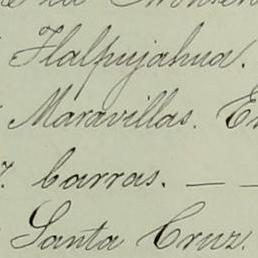 Tlalpujahua.
Maravillas. E
barras. — —
Santa Cruz.